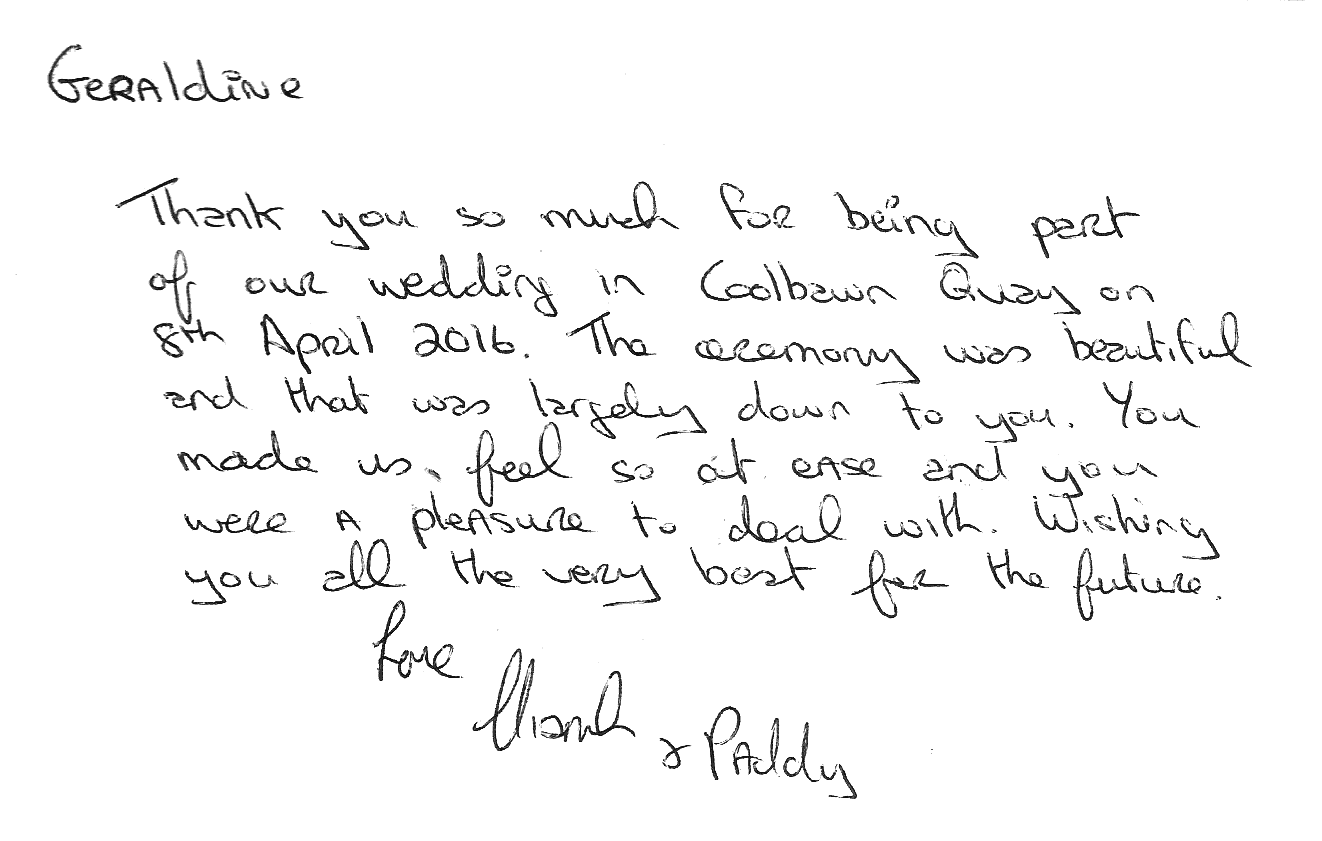 Geraldine
Thank you so much for being part
of our wedding in Coolbawn Quay on
8th April 2016. The ceremony was beautiful
and that was largely down to you. You
made us feel so at ease and you
were a pleasure to deal with. Wishing
you all the very best for the future.
Love
& Paddy